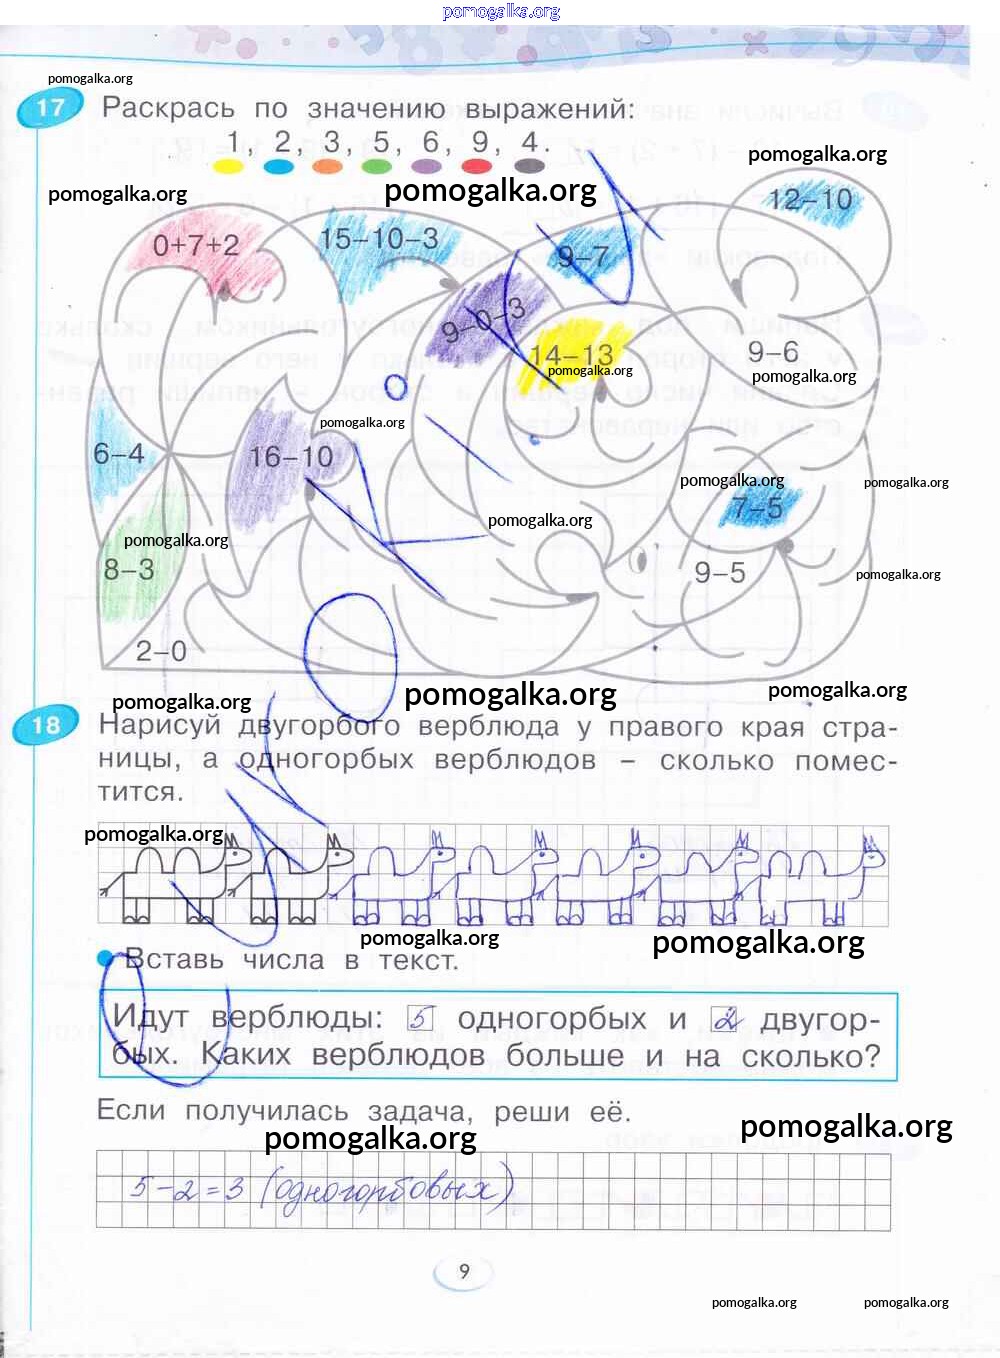 pomogalka.org
pomogalka.org
17 Раскрась по значению выражений:
1, 2, 3, 5, 6, 9, 4.
pomogalka.org
pomogalka.org
pomogalka.org
12–10
0+7+2
15–10–3
9–7
9–0–3
14–13
9–6
pomogalka.org
pomogalka.org
pomogalka.org
6–4
16–10
pomogalka.org
pomogalka.org
7–5
pomogalka.org
pomogalka.org
8–3
9–5
pomogalka.org
2–0
pomogalka.org
pomogalka.org
pomogalka.org
18 Нарисуй двугорбого верблюда у правого края стра-
ницы, а одногорбых верблюдов – сколько помес-
тится.
pomogalka.org
pomogalka.org
pomogalka.org
Вставь числа в текст.
Идут верблюды: 5 одногорбых и 2 двугор-
бых. Каких верблюдов больше и на сколько?
Если получилась задача, реши её.
pomogalka.org
pomogalka.org
5–2=3 (одногорбовых)
9
pomogalka.org
pomogalka.org